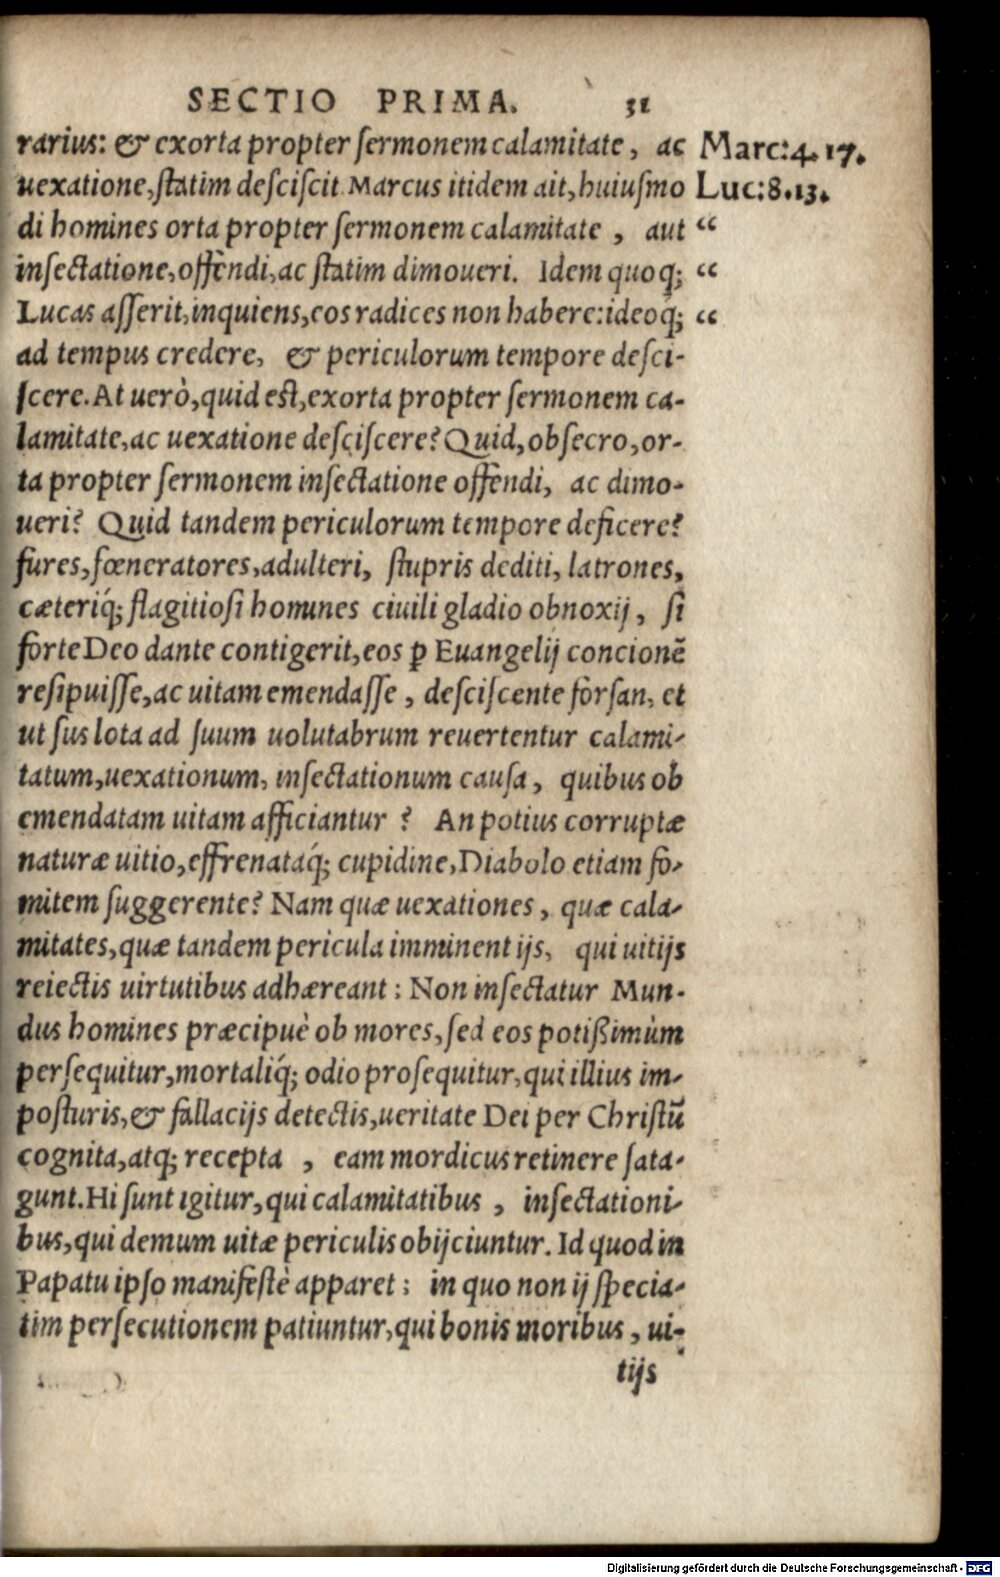 SECTIO PRIMA. 31
rarius: & exorta propter sermonem calamitate, ac Marc:4.17.
uexatione, statim desciscit. Marcus itidem ait, huiusmo Luc:8.13.
di homines orta propter sermonem calamitate, aut “
insectatione, offendi, ac statim dimoueri. Idem quoq; “
Lucas asserit, inquiens, eos radices non habere: ideoq́; “
ad tempus credere, & periculorum tempore desci-
scere. At uerò, quid est, exorta propter sermonem ca-
lamitate, ac uexatione desciscere? Quid, obsecro, or-
ta propter sermonem insectatione offendi, ac dimo-
ueri? Quid tandem periculorum tempore deficere?
fures, fœneratores, adulteri, stupris dediti, latrones,
cæteriq́; flagitiosi homines ciuili gladio obnoxij, si
forte Deo dante contigerit, eos ꝑ Euangelij concionẽ
resipuisse, ac uitam emendasse, desciscente forsan, et
ut sus lota ad suum uolutabrum reuertentur calami-
tatum, uexationum, insectationum causa, quibus ob
emendatam uitam afficiantur? An potius corruptæ
naturæ uitio, effrenataq́; cupidine, Diabolo etiam fo-
mitem suggerente? Nam quæ uexationes, quæ cala-
mitates, quæ tandem pericula imminent ijs, qui uitijs
reiectis uirtutibus adhæreant: Non insectatur Mun-
dus homines præcipuè ob mores, sed eos potißimùm
persequitur, mortaliq́; odio prosequitur, qui illius im-
posturis, & fallacijs detectis, ueritate Dei per Christũ
cognita, atq; recepta, eam mordicus retinere sata-
gunt. Hi sunt igitur, qui calamitatibus, insectationi-
bus, qui demum uitæ periculis obijciuntur. Id quod in
Papatu ipso manifestè apparet: in quo non ij specia-
tim persecutionem patiuntur, qui bonis moribus, ui-
tijs
Digitalisierung gefördert durch die Deutsche Forschungsgemeinschaft - DFG